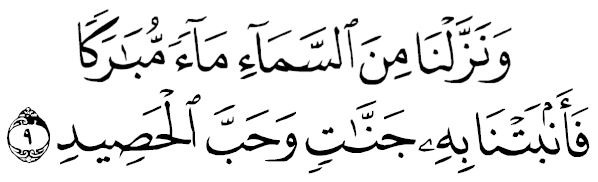 وَنَزَّلْنَا مِنَ ٱلسَّمَآءِ مَآءً مُّبَٰرَكًا
فَأَنۢبَتْنَا بِهِۦ جَنَّٰتٍ وَحَبَّ ٱلْحَصِيدِ ٩